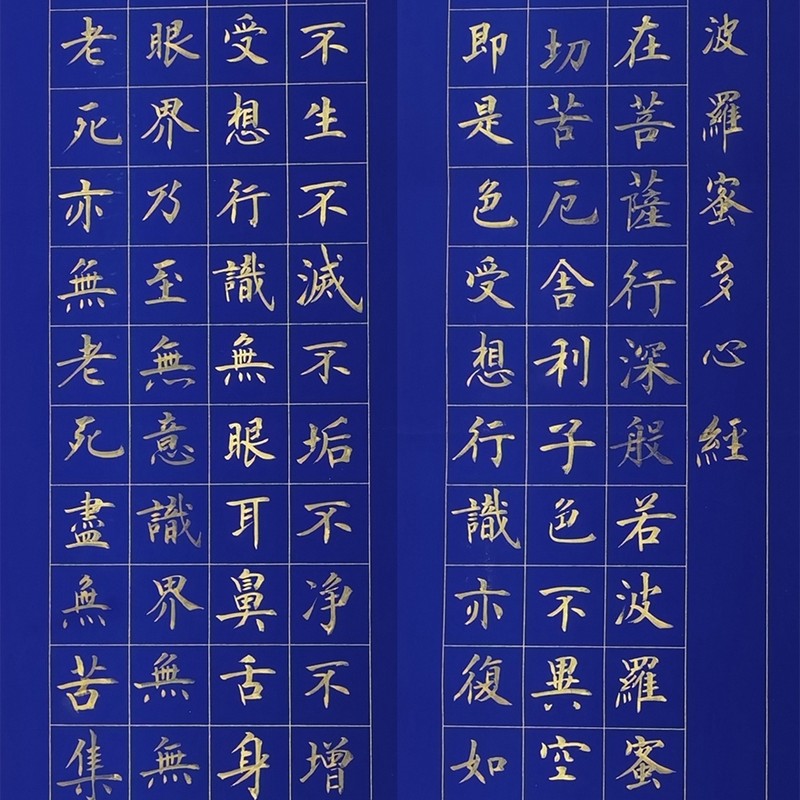 波羅蜜多心經
在菩薩行深般若波羅蜜
切苦厄舍利子色不異空
即是色受想行識亦復如
不生不滅不垢不净不增
受想行識無眼耳鼻舌身
眼界乃至無意識界無無
老死亦無老死盡無苦集